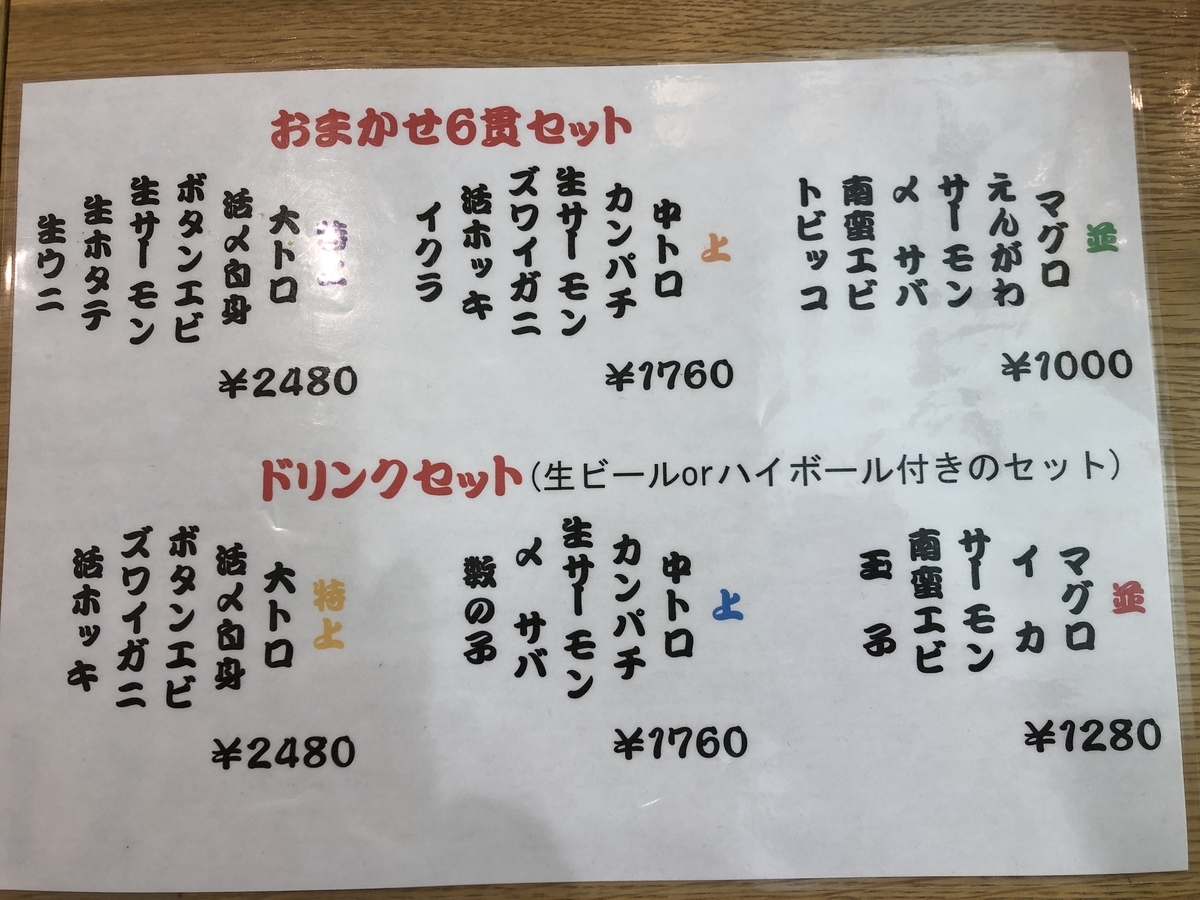 おまかせ6貫セット
並
マグロ
えんがわ
サーモン
〆サバ
南蛮エビ
トビッコ
¥1000
上
中トロ
カンパチ
生サーモン
ズワイガニ
活ホッキ
イクラ
¥1760
特上
大トロ
活〆白身
ボタンエビ
生サーモン
生ホタテ
生ウニ
¥2480
ドリンクセット(生ビールorハイボール付きのセット)
並
マグロ
イカ
サーモン
南蛮エビ
玉子
¥1280
上
中トロ
カンパチ
生サーモン
〆サバ
数の子
¥1760
特上
大トロ
活〆白身
ボタンエビ
ズワイガニ
活ホッキ
¥2480